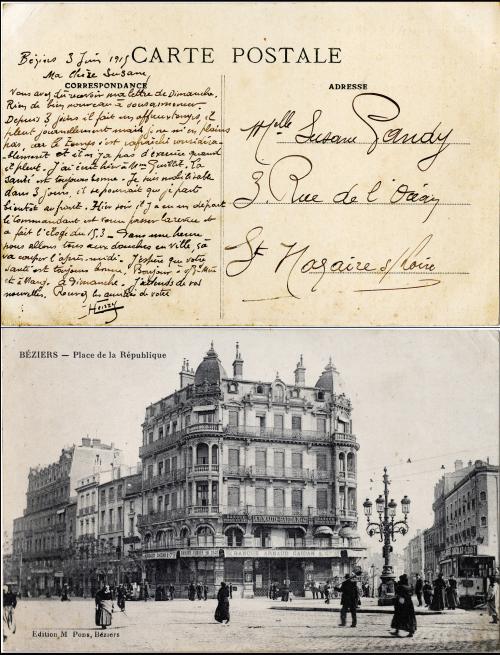 CARTE POSTALE
Béziers 3 Juin 1915
Ma chère Susane,
CORRESPONDANCE
ADRESSE
Vous avez dû recevoir ma lettre de Dimanche.
Rien de bien nouveau à vous
Depuis 3 jours il fait un affreux temps, il
pleut journellement mais je ne m'en plains
pas, car le temps s'est rafraîchi
et il n'y a pas d'exercice quand
il pleut. J'ai écrit hier à Mme Guillot. La
santé est toujours bonne. Je suis mobilisable
dans 3 jours, il se pourrait que je parte
bientôt au front. Hier soir il y a eu un départ
le Commandant est venu passer la revue et
a fait l'éloge du 15.3 - Dans une heure
nous allons tous aux douches en ville, ça
va couper l'après-midi. J'espère que votre
santé est toujours bonne. Bonjour à
et à à Dimanche. J'attends de vos
nouvelles. Recevez les amitiés de votre
Melle Susane Gandy
3, Rue de l'Océan
St Nazaire s/Loire
BÉZIERS — Place de la République
BANQUE ARNAUD GAIDAN & Cie
Edition M Pons, Béziers